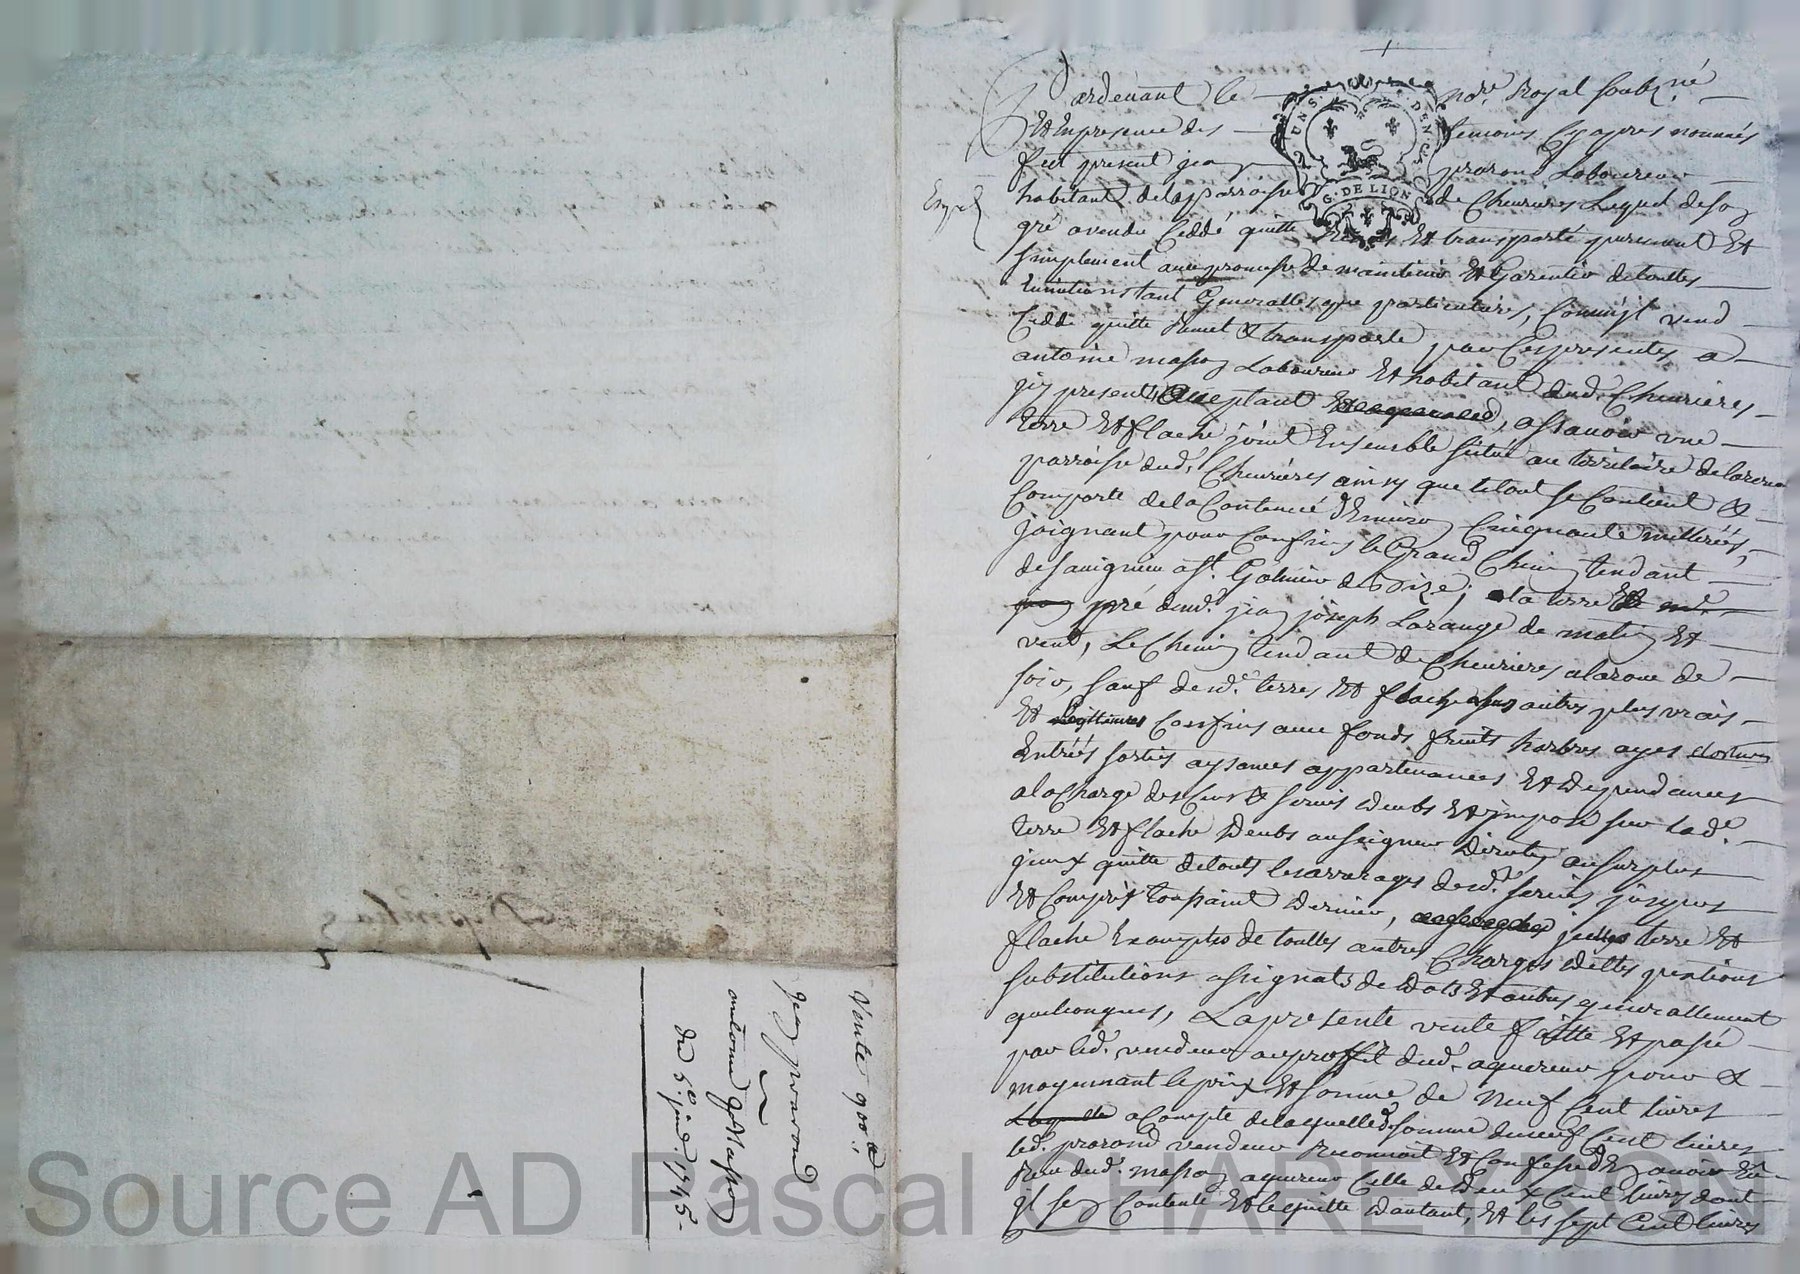 Pardevant le nore. Royal soubzne.
Et En presence des temoins Cy apres nommés
fut present jean praron Laboureur
habitant de la parroisse de Chevrieres Lequel de son
Expedé
gré a vendu Ceddé quitté Remis Et transporté purement Et
simplement avec promesse de maintenir Et Garentir de touttes
Evictions tant Generalles que particulieres, Comm'jl vend
Cedde quitte Remet & transporte par Ces presentes a
antoine masson Laboureur Et habitant dud. Chevrieres
jcy present acceptant, assavoir une
terre Et flache joint Ensemble situé au territoire de laroue
parroisse dud. Chevrières ainsy que le tout se Contient &
Comporte de la Contenüe d'Environ Cinquante metterées,
joignant pour Confins le Grand Chemin tendant
de savignieu a st. Galmier de Bize, la terre Et
pré dud. jean joseph Lorange de matin Et
vent, Le Chemin tendant de Chevrieres a laroue de
soir, sauf desd. terres Et flache autres plus vrais
Et Confins avec fonds fruits harbres ayes clotures
Entrées sorties aysances appartenances Et Dependances
a la Charge des Cens & servis Deubs Et jmposé sur lade.
terre Et flache Deubs au seigneur Direct, au surplus
jceux quitte de touts les arrerages desd. servis jusques
Et Compris toussaint Dernier, terre Et
flache Exempts de touttes autres Charges Dettes pentions
substitutions assignats de Dots Et autres generallement
quelconques, La presente vente faitte Et passé
par led. vendeur au proffit dud. aquereur pour &
moyennant le prix Et somme de Neuf Cent livres
a Compte de laquelle somme de neuf Cent livres
led. praron vendeur Reconnoit Et Confesse d'En avoir
Reçu dud. masson aquereur Celle de Deux Cent livres dont
jl s'en Contente Et le quitte D'autant, Et les sept Cent livres
Vente 900lt.
Jean praron
antoine Masson
du 5e. juin 1745.
Source AD Pascal CHAREYRON